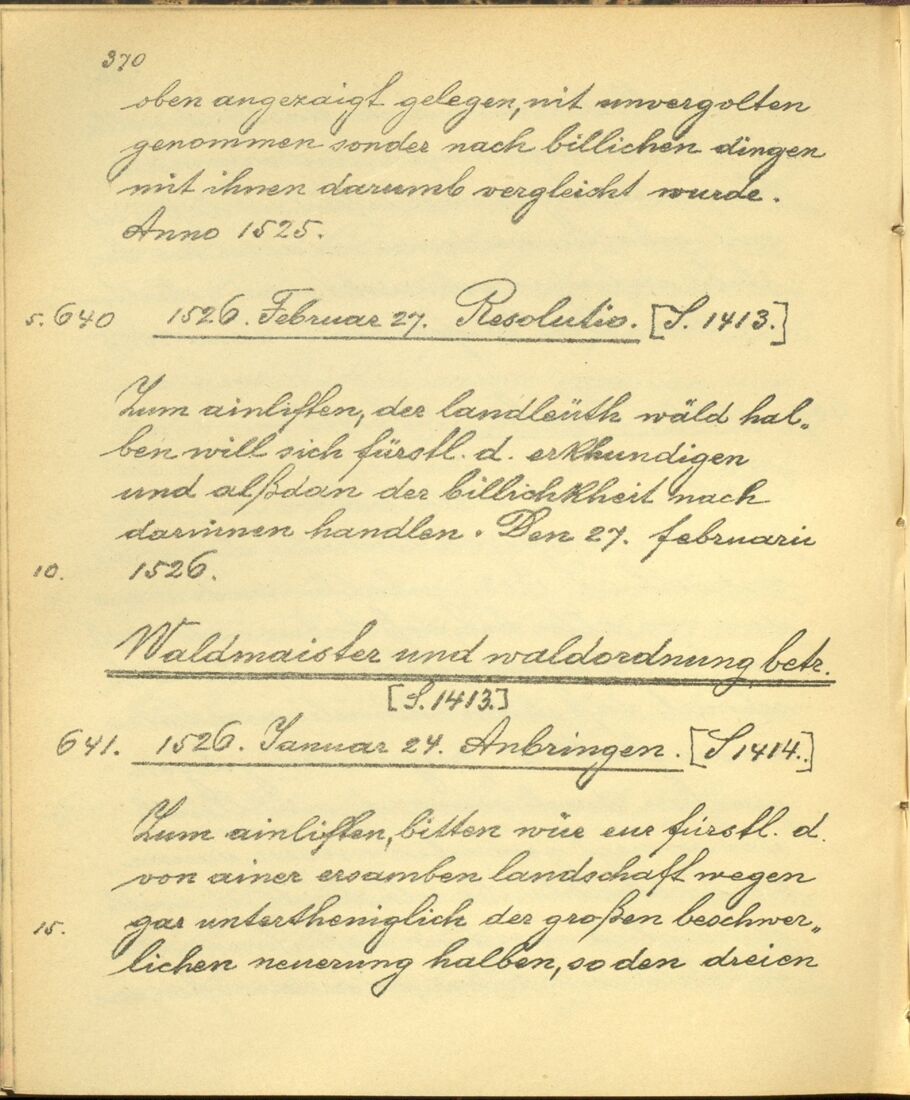 370
oben angezaigt gelegen, nit unvergolten
genommen sonder nach billichen dingen
mit ihnen darumb vergleicht wurde.
Anno 1525.
5. 640 1526. Februar 27. Resolutio. [S. 1413.]
Zum ainliften, der landleüth wäld hal„
ben will sich fürstl. d. erkhundigen
und alßdan der billichkheit nach
darinnen handlen. Den 27. februarii
10. 1526.
Waldmaister und waldordnung betr.
[S. 1413.]
641. 1526. Januar 24. Anbringen. [S 1414.]
Zum ainliften, bitten wür eur fürstl. d.
von ainer ersamben landschaft wegen
15. gar untertheniglich der großen beschwer„
lichen neuerung halben, so den dreien